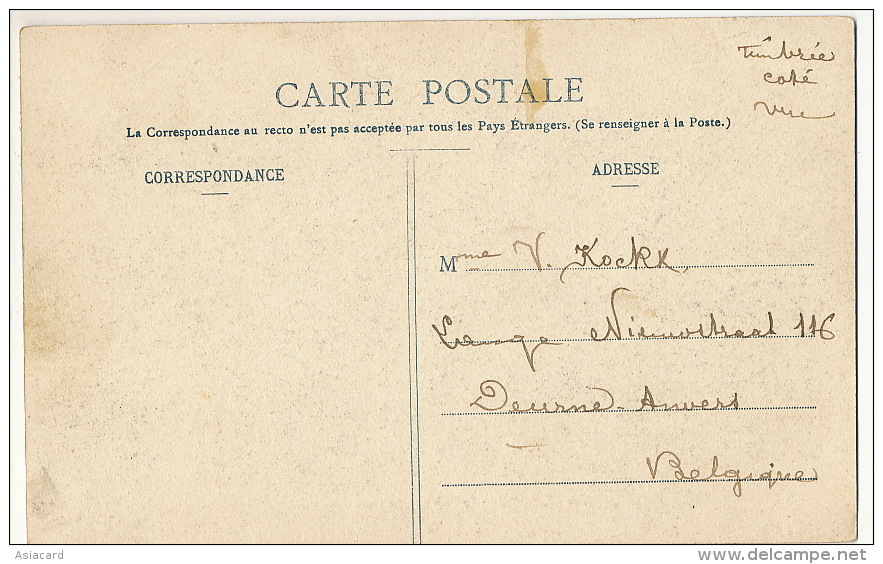 timbrée
coté
vue
CARTE POSTALE
La Correspondance au recto n'est pas acceptée par tous les Pays Étrangers. (Se renseigner à la Poste.)
CORRESPONDANCE
ADRESSE
Mme V. Kockx
Lange Nieuwstraat 116
Deurne-Anvers
Belgique
Asiacard
www.delcampe.net